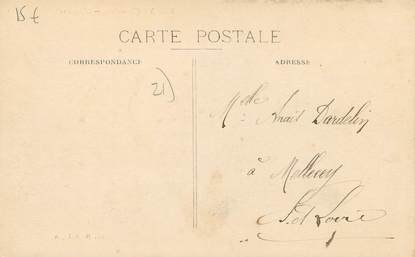 15€
CARTE POSTALE
CORRESPONDANCE
ADRESSE
21)
Melle Anaïs Dardelin
à Mellecey
S. et Loire